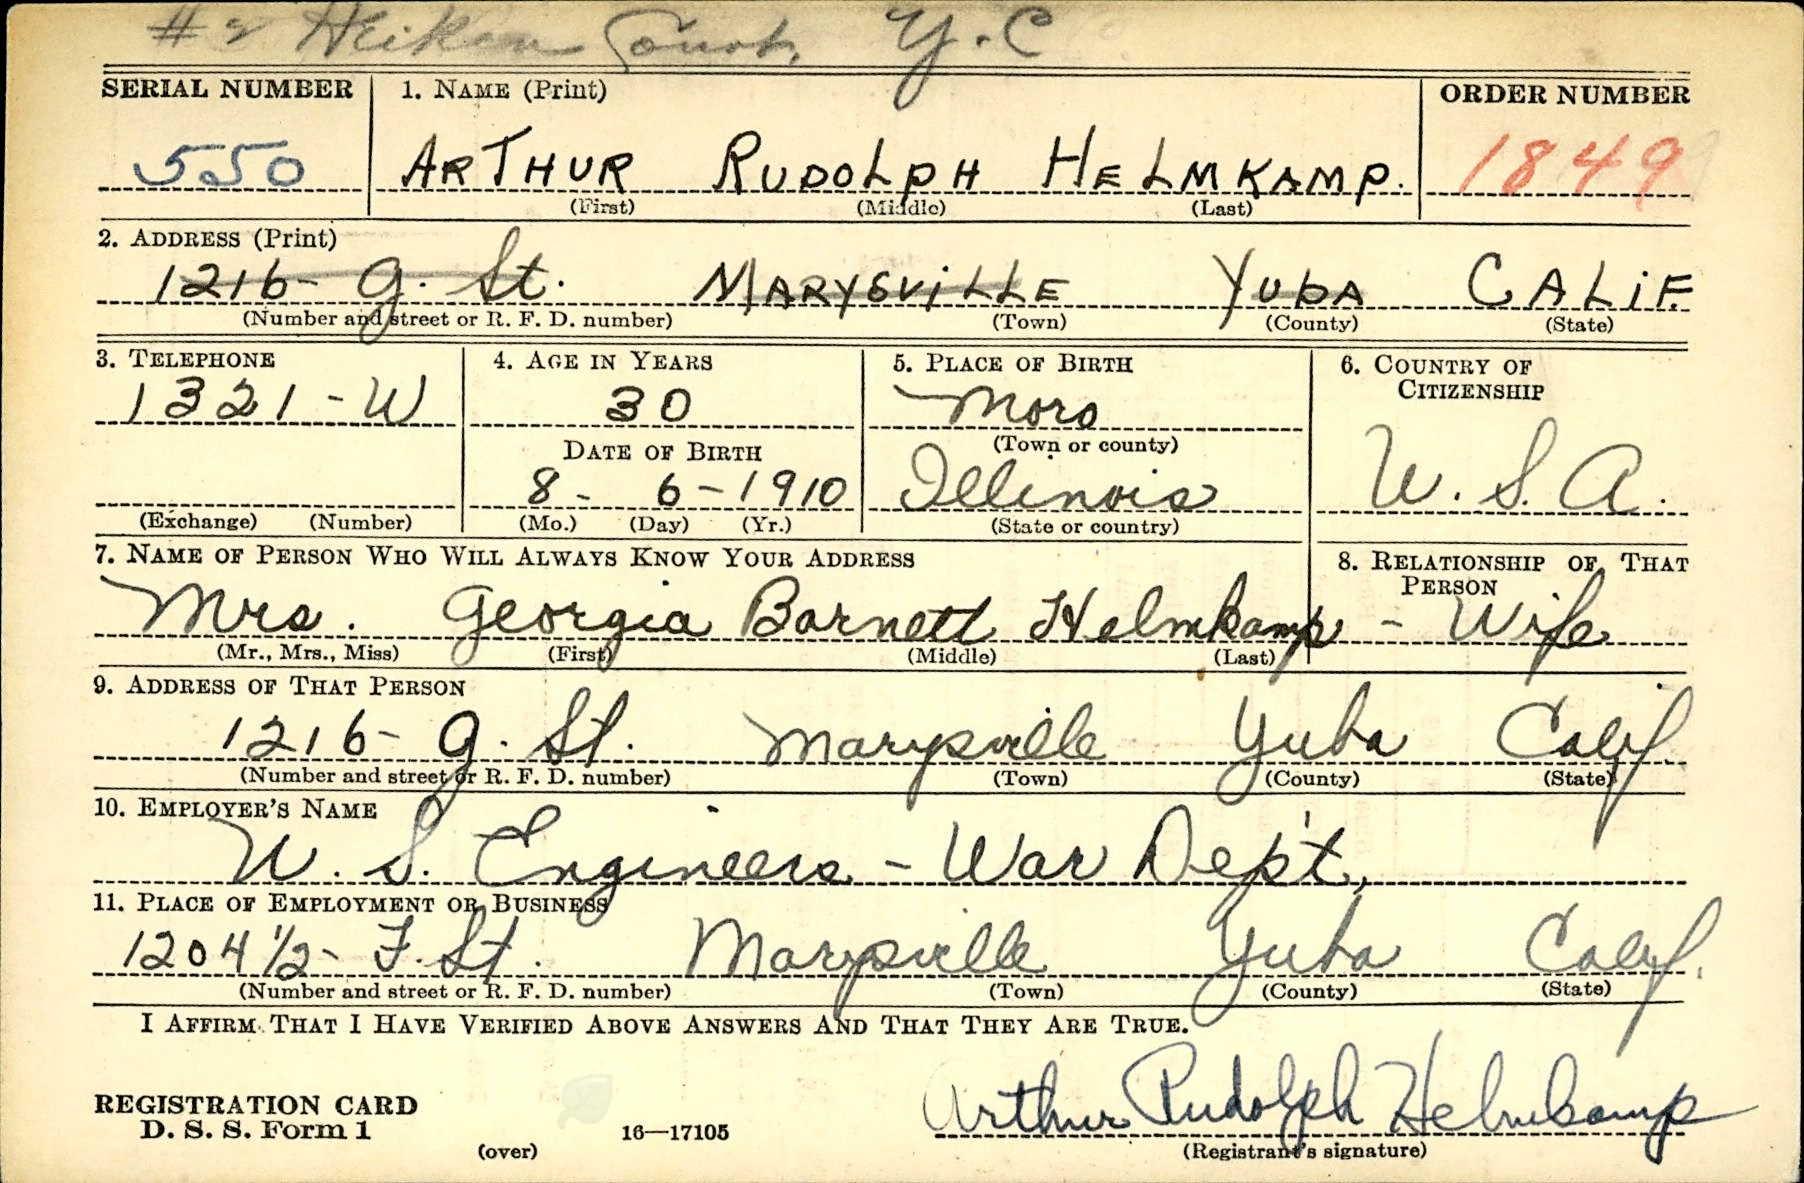 #2 Heiken Court, Y.C
SERIAL NUMBER 1. NAME (Print) ORDER NUMBER
550 ARTHUR RUDOLPH HELMKAMP. 1849
(First) (Middle) (Last)
2. ADDRESS (Print)
1216- G. St. MARYSVILLE YUBA CALIF.
(Number and street or R. F. D. number) (Town) (County) (State)
3. TELEPHONE 4. AGE IN YEARS 5. PLACE OF BIRTH 6. COUNTRY OF CITIZENSHIP
1321-W 30 Moro
DATE OF BIRTH (Town or county)
8- 6-1910 Illinois U. S. A.
(Exchange) (Number) (Mo.) (Day) (Yr.) (State or country)
7. NAME OF PERSON WHO WILL ALWAYS KNOW YOUR ADDRESS 8. RELATIONSHIP OF THAT PERSON
Mrs. Georgia Barnett Helmkamp - Wife
(Mr., Mrs., Miss) (First) (Middle) (Last)
9. ADDRESS OF THAT PERSON
1216- G. St. Marysville Yuba Calif.
(Number and street or R. F. D. number) (Town) (County) (State)
10. EMPLOYER'S NAME
U. S. Engineers - War Dep't,
11. PLACE OF EMPLOYMENT OR BUSINESS
1204 1/2- F. St. Marysville Yuba Calif.
(Number and street or R. F. D. number) (Town) (County) (State)
I AFFIRM THAT I HAVE VERIFIED ABOVE ANSWERS AND THAT THEY ARE TRUE.
REGISTRATION CARD Arthur Rudolph Helmkamp
D. S. S. Form 1 (over) 16—17105 (Registrant's signature)